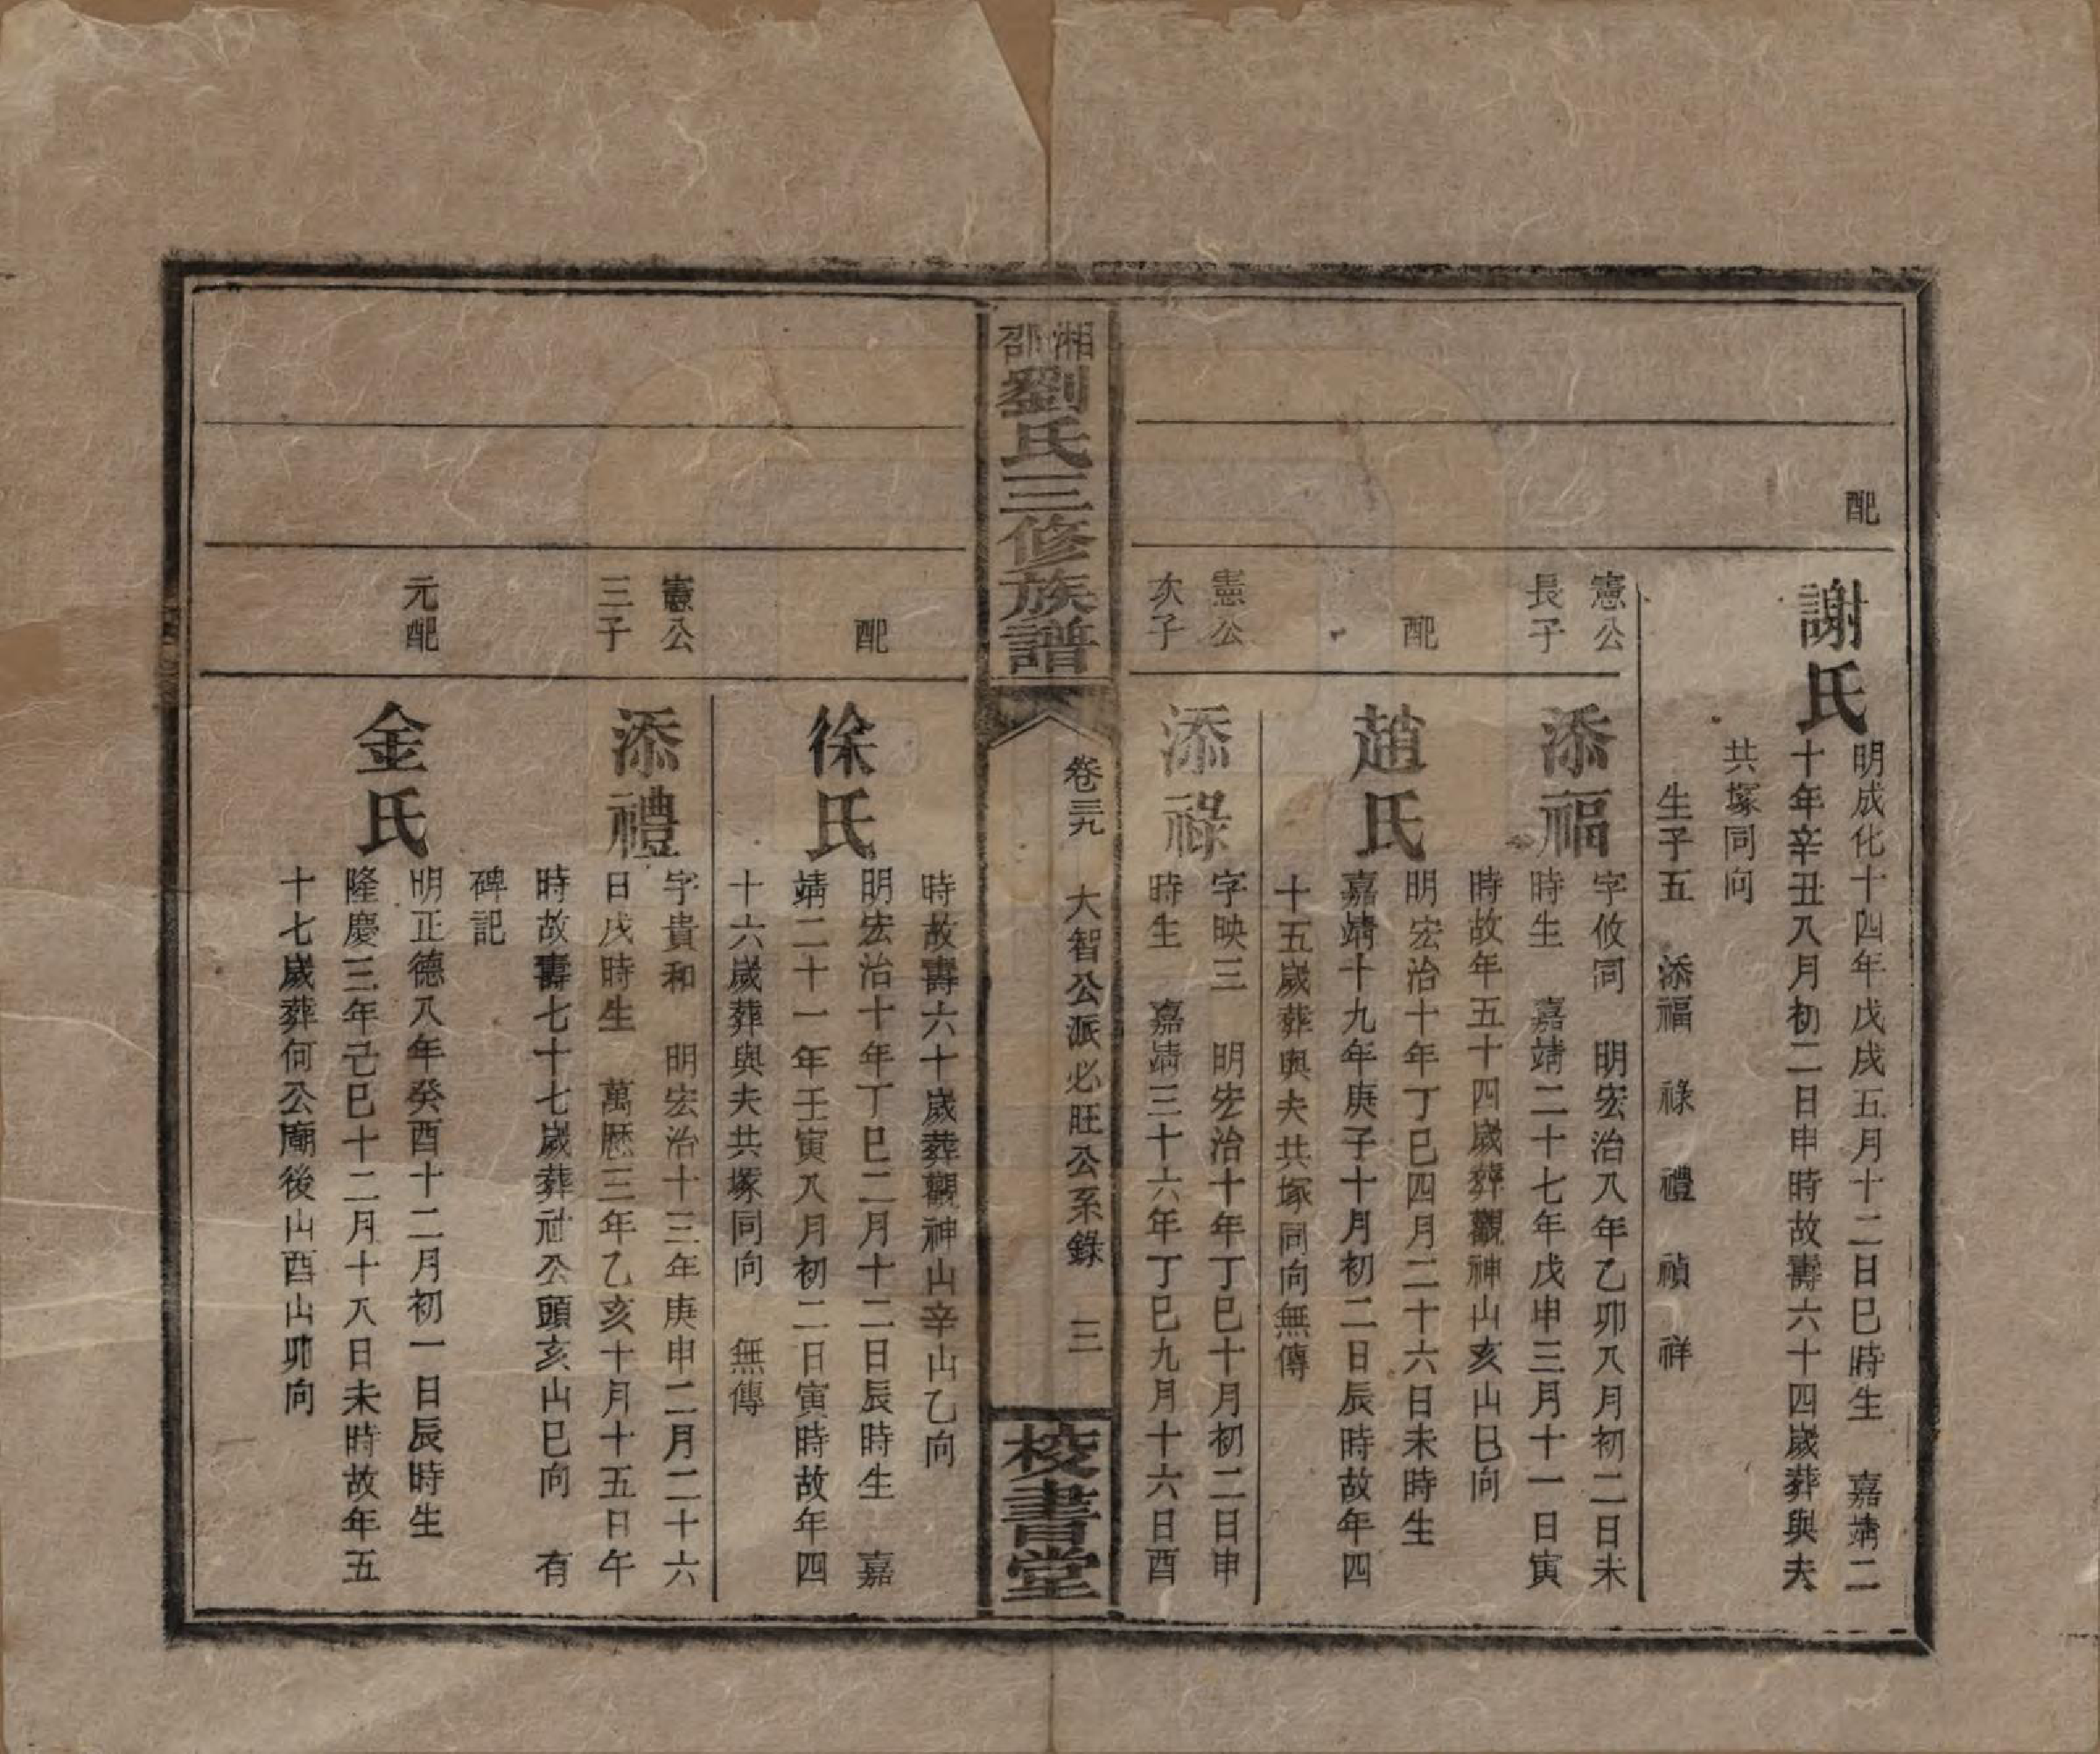 配
謝氏
明成化十四年戊戌五月十二日巳時生 嘉靖二
十年辛丑八月初二日申時故壽六十四歲葬與夫
共塚同向
生子五 添福 祿 禮 禎 祥
憲公
長子
添福
字攸同 明宏治八年乙卯八月初二日未
時生 嘉靖二十七年戊申三月十一日寅
時故年五十四歲葬觀神山亥山巳向
配
趙氏
明宏治十年丁巳四月二十六日未時生
嘉靖十九年庚子十月初二日辰時故年四
十五歲葬與夫共塚同向無傳
憲公
次子
添祿
字映三 明宏治十年丁巳十月初二日申
時生 嘉靖三十六年丁巳九月十六日酉
湘邵劉氏三修族譜
卷三九 大智公派必旺公系錄 三
校書堂
時故壽六十歲葬觀神山辛山乙向
配
徐氏
明宏治十年丁巳二月十二日辰時生 嘉
靖二十一年壬寅八月初二日寅時故年四
十六歲葬與夫共塚同向 無傳
憲公
三子
添禮
字貴和 明宏治十三年庚申二月二十六
日戌時生 萬歷三年乙亥十月十五日午
時故壽七十七歲葬社公頭亥山巳向 有
碑記
元配
金氏
明正德八年癸酉十二月初一日辰時生
隆慶三年己巳十二月十八日未時故年五
十七歲葬何公廟後山酉山卯向